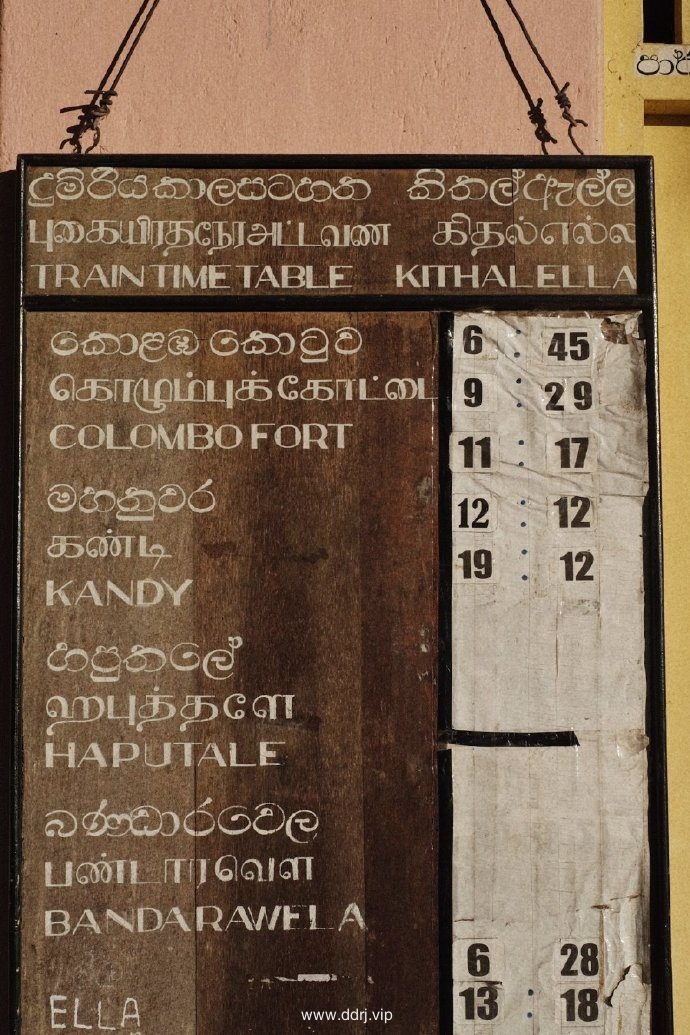 දුම්රියකාලසටහන කිතල්ඇල්ල
புகையிரதநேரஅட்டவண கிதல்எல்ல
TRAIN TIME TABLE KITHALELLA
කොළඹ කොටුව 6 : 45
கொழும்புக்கோட்டை 9 : 29
COLOMBO FORT 11 : 17
මහනුවර 12 : 12
கண்டி 19 : 12
KANDY
හපුතලේ
ஹபுத்தளே
HAPUTALE
බණ්ඩාරවෙල
பண்டாரவெள
BANDARAWELA 6 28
ELLA 13 : 18
www.ddrj.vip